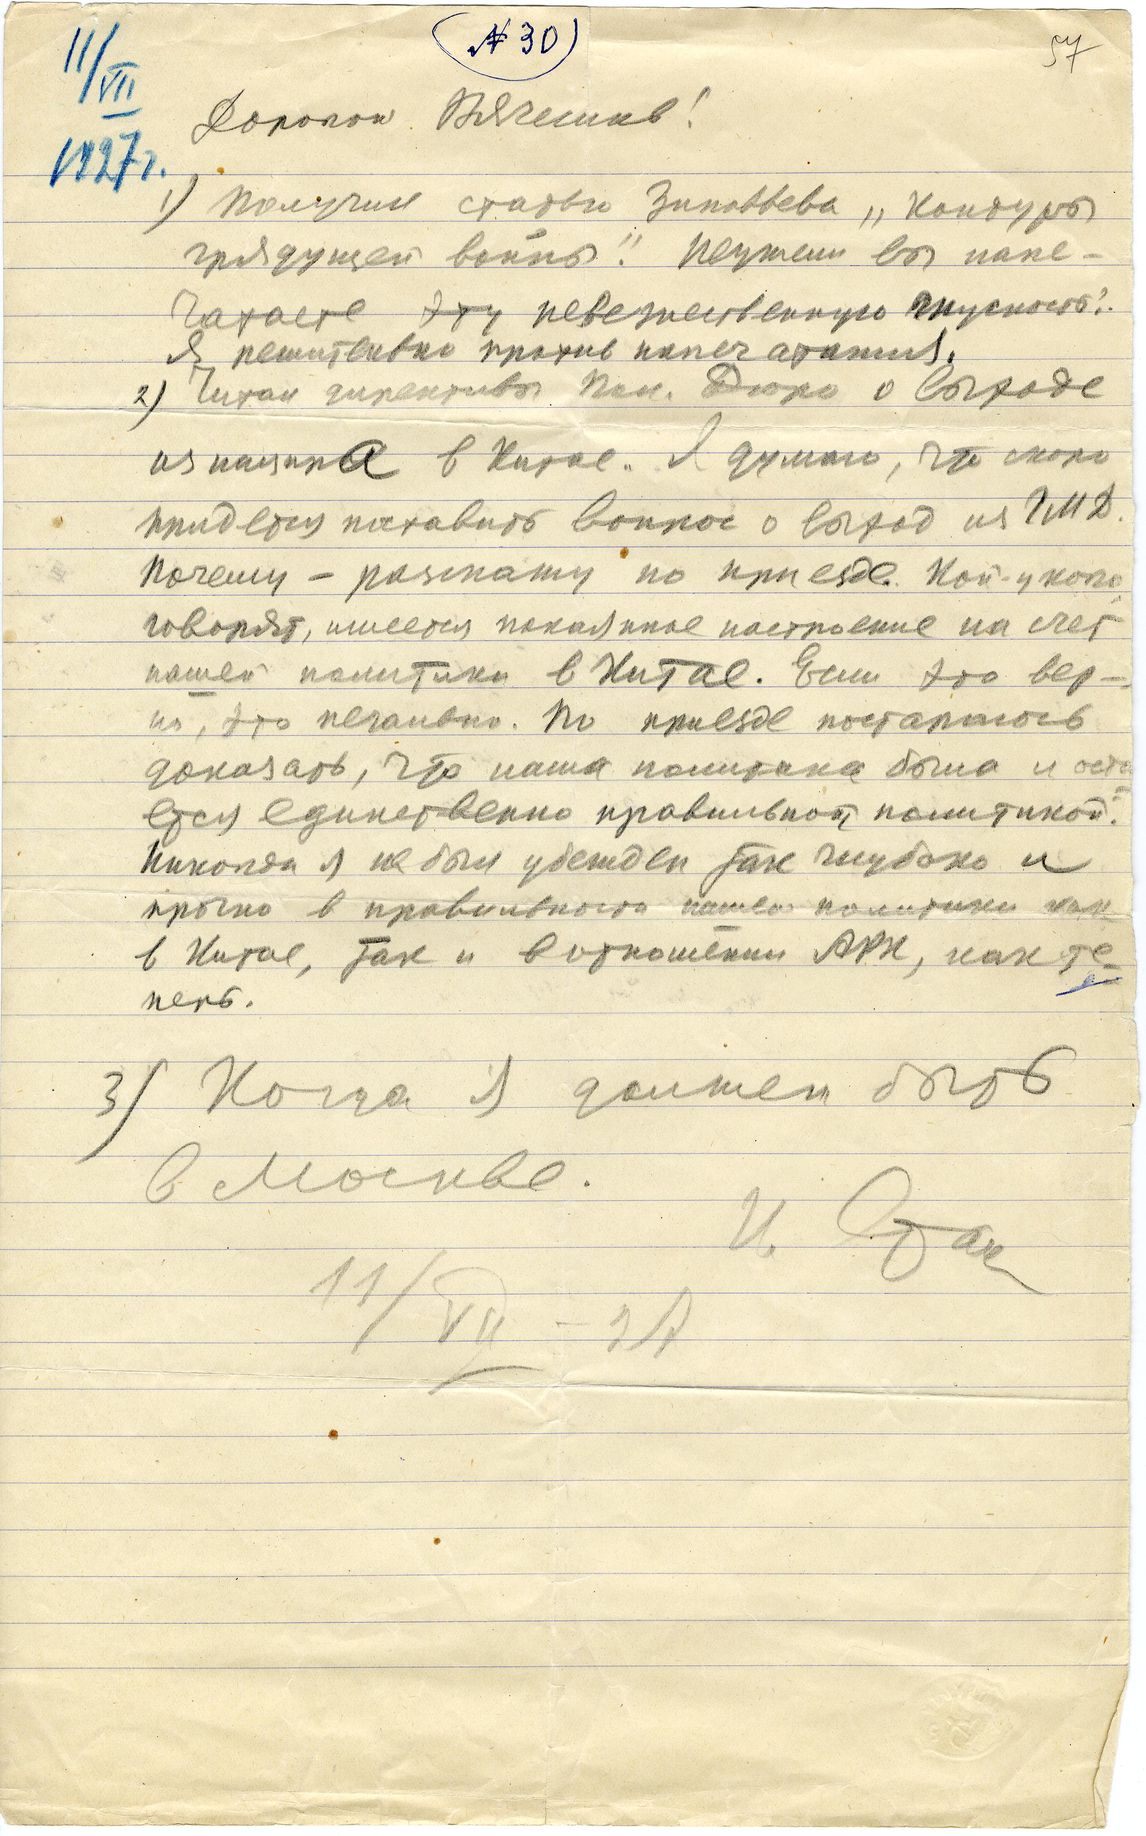 11/VII
1927 г.
(№ 30)
57
Дорогой Вячеслав!
1) Получил статью Зиновьева „Контуры
грядущей войны". Неужели вы напе-
чатаете эту невежественную
Я решительно против напечатания.
2) Читал директивы Пол. Бюро о выходе
из нацпра в Китае. Я думаю, что скоро
придется поставить вопрос о выход из ГМД.
Почему – разскажу по приезде. Кой-у кого,
говорят, имеется покаянное настроение на счет
нашей политики в Китае. Если это вер-
но, это печально. По приезде постараюсь
доказать, что наша политика была и оста
ется единственно правильной политикой.
Никогда я не был убежден так глубоко и
прочно в правильность нашей политики как
в Китае, так и в отношении АРК, как те-
перь.
3) Когда я должен быть
в Москве.
И. Стал
11/VII – 27